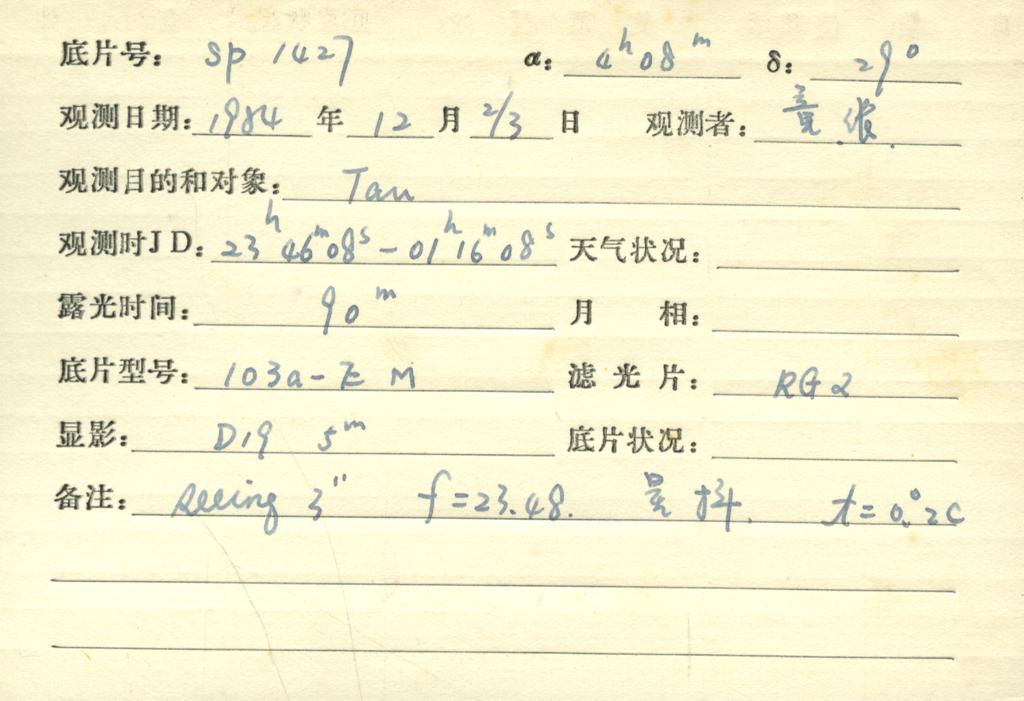 底片号: Sp 1427 α: 4ʰ08ᵐ δ: 29°
观测日期: 1984 年 12 月 2/3 日 观测者:
观测目的和对象: Tau
观测时JD: 23ʰ46ᵐ08ˢ-01ʰ16ᵐ08ˢ 天气状况:
露光时间: 90ᵐ 月 相:
底片型号: 103a-E M 滤光片: RG2
显影: D19 5ᵐ 底片状况:
备注: seeing 3" f=23.48. 星抖. t=0.°2C